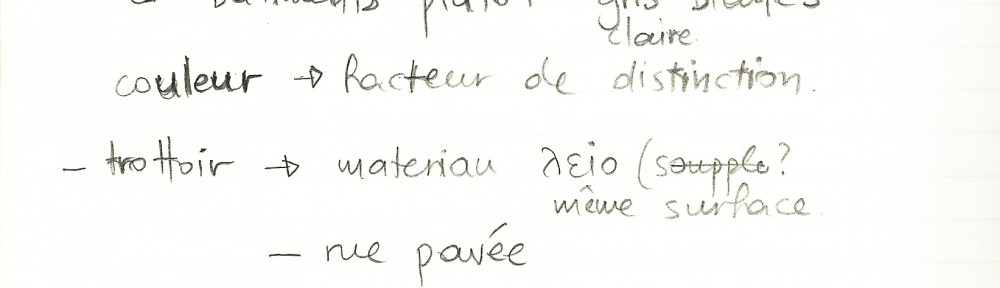 bâtiments plutôt gris
claire.
couleur → facteur de distinction.
- trottoir → materiau λείο (souple?
même surface.
- rue pavée